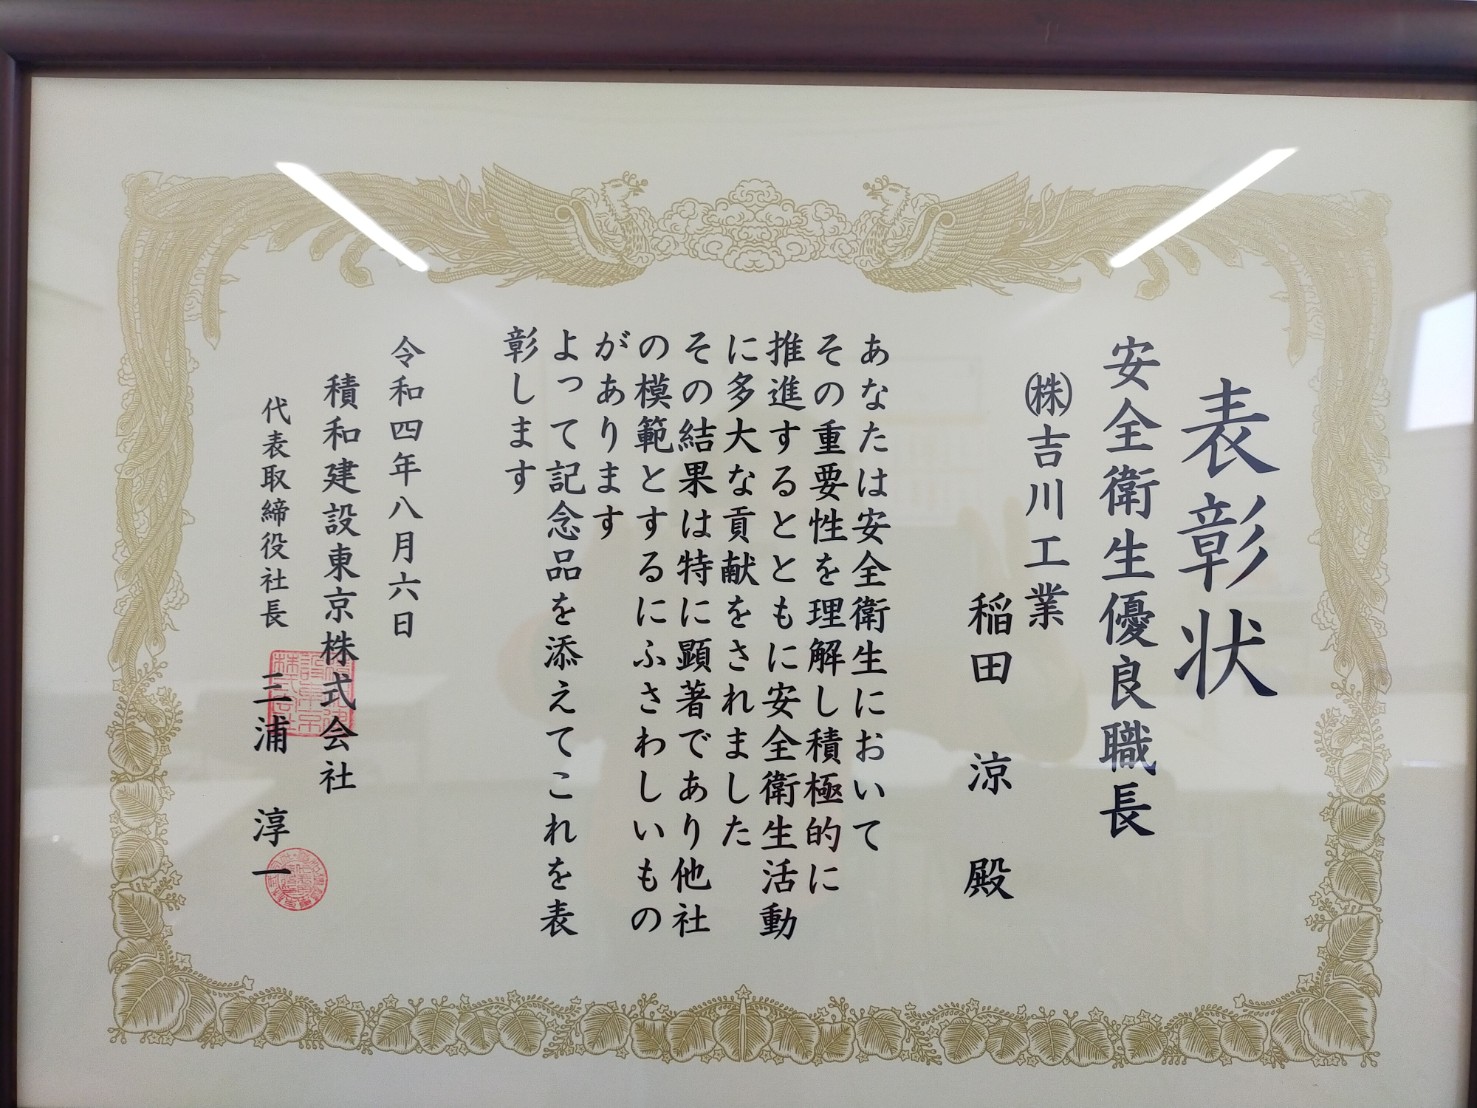 表彰状
安全衛生優良職長
㈱吉川工業
稲田 涼 殿
あなたは安全衛生において
その重要性を理解し積極的に
推進するとともに安全衛生活動
に多大な貢献をされました
その結果は特に顕著であり他社
の模範とするにふさわしいもの
があります
よって記念品を添えてこれを表
彰します
令和四年八月六日
積和建設東京株式会社
代表取締役社長 三浦 淳一